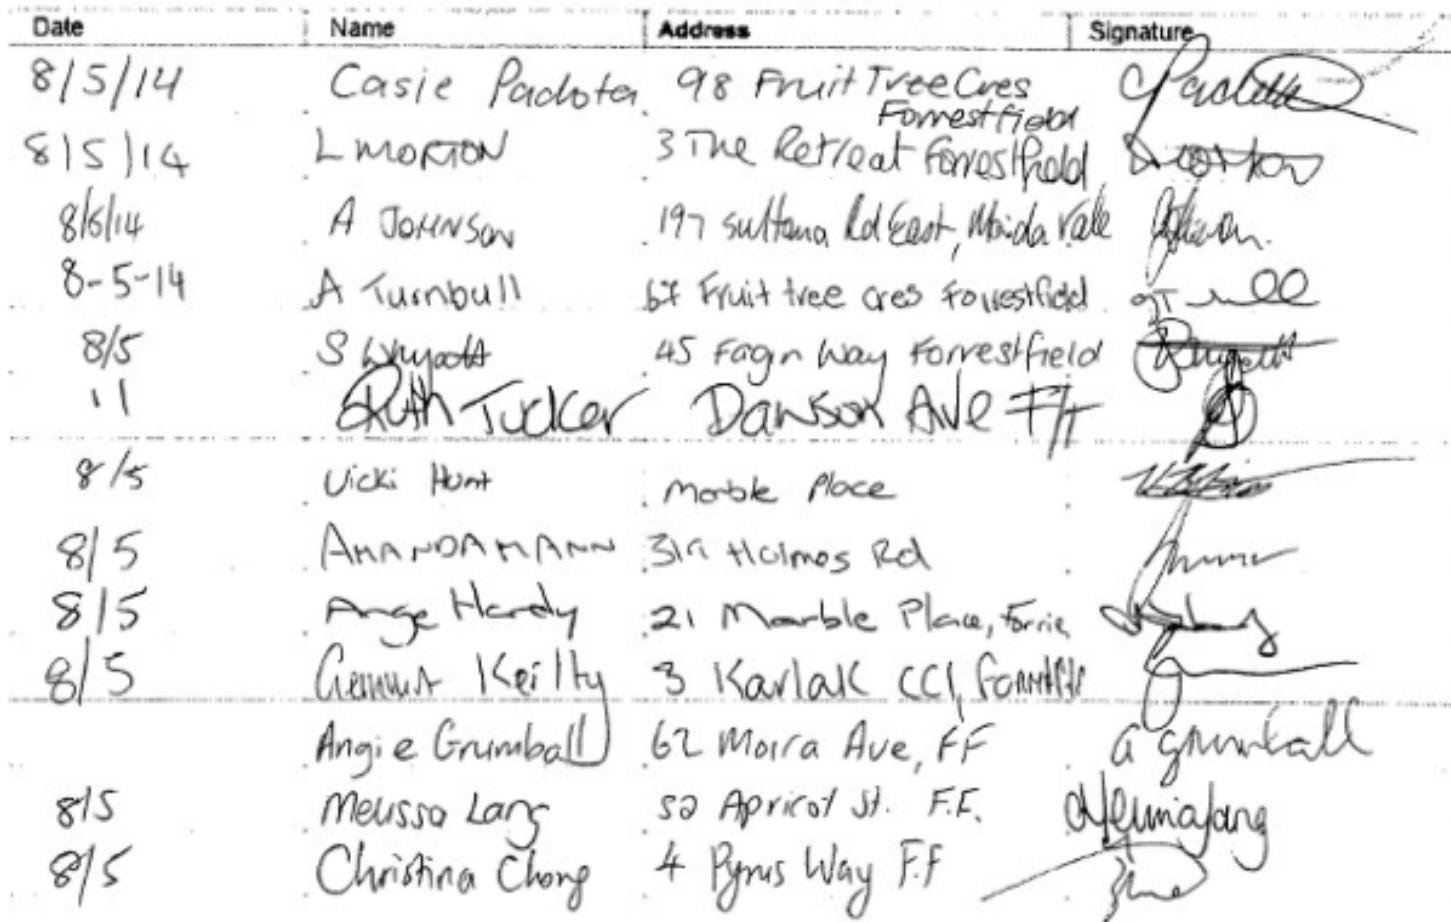 Date Name Address Signature
8/5/14 Casie Padota 98 Fruit Tree Cres
Forrestfield
8/5/14 L MORTON 3 The Retreat Forrestfield
8/5/14 A JOHNSON 197 Sultana Rd East, Maida Vale
8-5-14 A Turnbull 67 Fruit tree cres Forrestfield
8/5 S Whyatt 45 Fagin Way Forrestfield
11 Ruth Tucker Dawson Ave F/F
8/5 Vicki Hunt Marble Place
8/5 AMANDA MANN Holmes Rd
8/5 Ange Hardy 21 Marble Place, Forrie
8/5 Keilty 3 Karlak CCl,
Angie Grumball 62 Moira Ave, FF a grumball
8/5 Melissa Lang 52 Apricot St. F.F. Melissa Lang
8/5 Christina Chong 4 Pyrus Way F.F